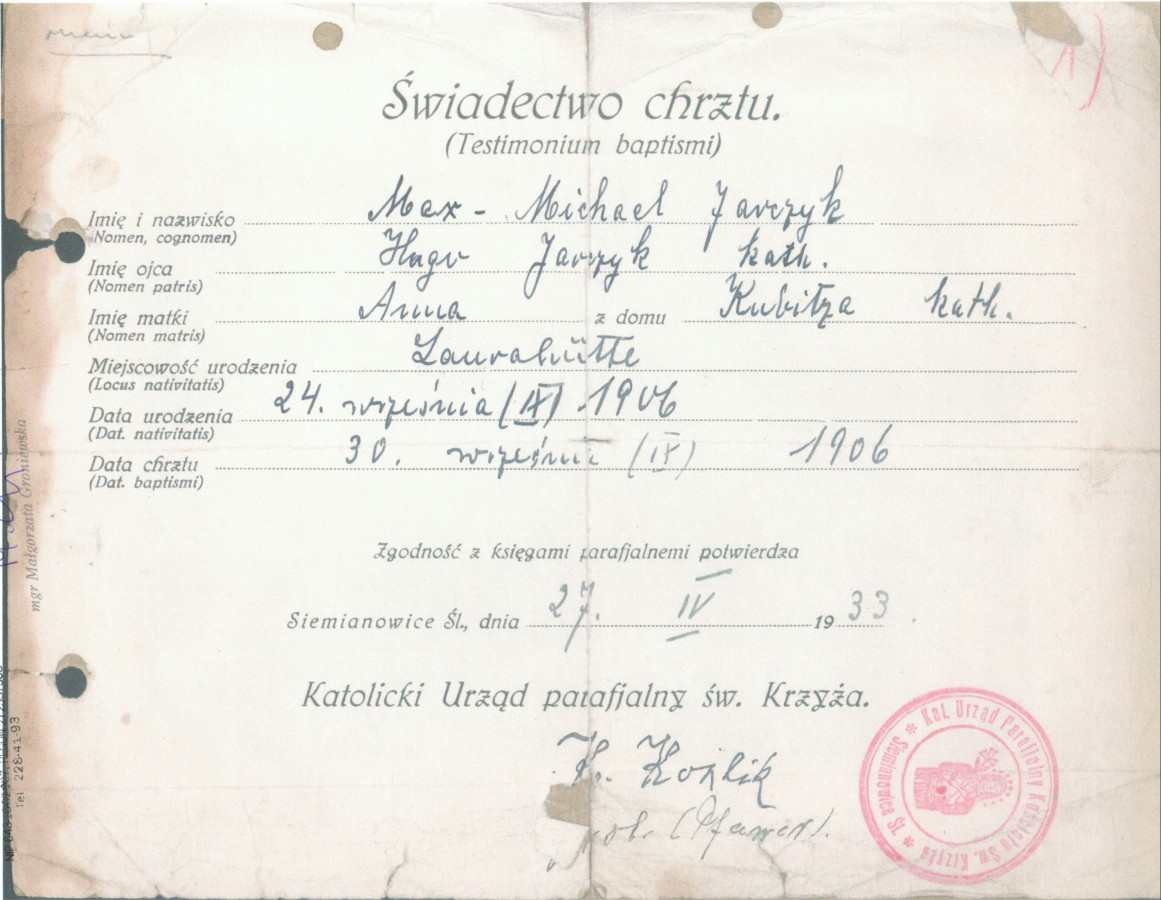 Świadectwo chrztu.
(Testimonium baptismi)
Imię i nazwisko Max - Michael Jarczyk
(Nomen, cognomen)
Imię ojca Hugo Jarczyk kath.
(Nomen patris)
Imię matki Anna z domu Kubitza kath.
(Nomen matris)
Miejscowość urodzenia Laurahütte
(Locus nativitatis)
Data urodzenia 24. września (IX) 1906
(Dat. nativitatis)
Data chrztu 30. września (IX) 1906
(Dat. baptismi)
Zgodność z księgami parafjalnemi potwierdza
Siemianowice Śl., dnia 27. IV 1933.
Katolicki Urząd parafjalny św. Krzyża.
K. Koźlik
(Pfarrer).
Kat. Urząd Parafjalny Kościoła Św. Krzyża * Siemianowice Śl *
mgr Małgorzata Groniewska
Tel 228-41-93